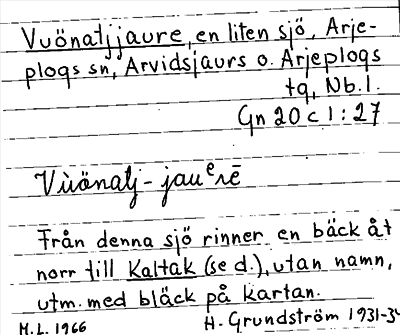 Vuönatjjaure, en liten sjö, Arje-
plogs sn, Arvidsjaurs o. Arjeplogs
tg, Nb. l.
Gn 20 c 1 : 27
Vùönatj - jauᵉrē
Från denna sjö rinner en bäck åt
norr till Kaltak (se d.), utan namn,
utm. med bläck på kartan.
M.L. 1966 H. Grundström 1931-34